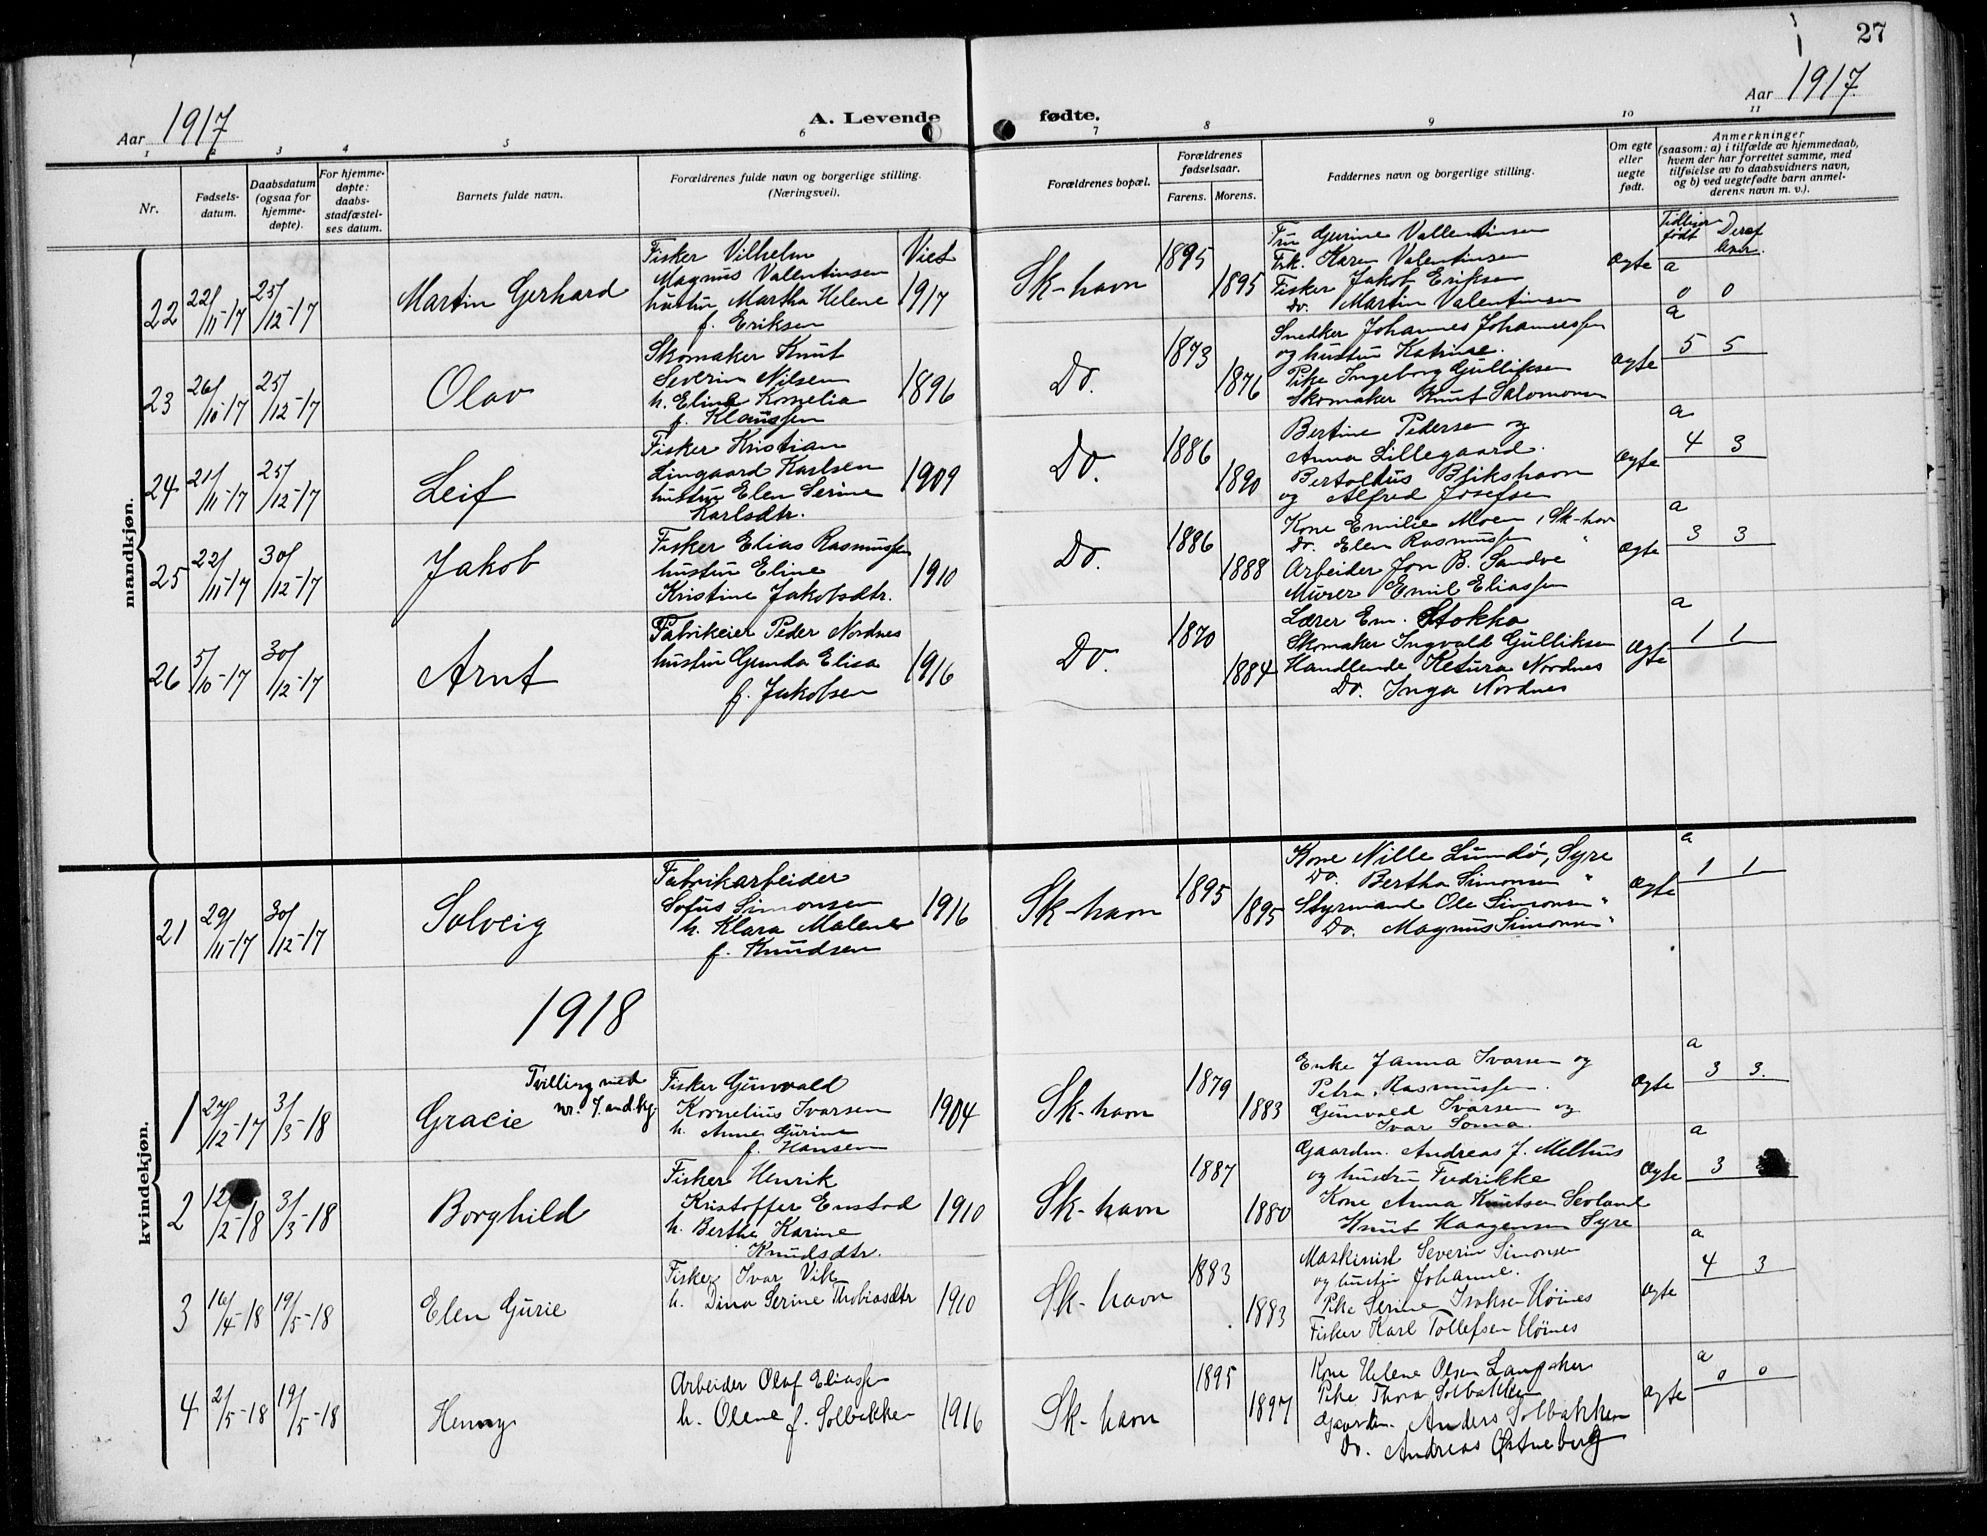 27
Aar 1917
A. Levende fødte.
Aar 1917.
1 2 3 4 5 6 7 8 9 10 11
Nr.
Fødsels-
datum.
Daabsdatum
(ogsaa for
hjemme-
døpte).
For hjemme-
døpte:
daabs-
stadfæstel-
ses datum.
Barnets fulde navn.
Forældrenes fulde navn og borgerlige stilling.
(Næringsvei).
Forældrenes bopæl.
Forældrenes
fødselsaar.
Farens. Morens.
Faddernes navn og borgerlige stilling.
Om egte
eller
uegte
født.
Anmerkninger
(saasom: a) i tilfælde av hjemmedaab,
hvem der har forrettet samme, med
tilføielse av to daabsvidners navn,
og b) ved uegtefødte barn anmel-
derens navn m. v.).
Viet
Tidligere født
Deraf lever
mandkjøn.
22 22/11-17 25/12-17 Martin Gerhard
Fisker Vilhelm
Magnus Valentinsen
hustru Martha Helene
f. Eriksen
1917 Sk-havn 1895 1895
Fru Gurine Vallentinsen
Frk. Karen Valentinsen
Fisker Jakob Eriksen
Do. Martin Valentinsen
Ægte a 0 0
23 26/10-17 25/12-17 Olav
Skomaker Knut
Severin Nilsen
h. Eline Kornelia
f. Klaussen
1896 Do. 1873 1876
Snedker Johannes Johannessen
og hustru Katrine.
Pike Ingeborg Gulliksen
Skomaker Knut Salomonsen
Ægte a 5 5
24 21/11-17 25/12-17 Leif
Fisker Kristian
Lingaard Karlsen
hustru Elen Serine
Karlsdtr.
1909 Do. 1886 1890
Bertine Pedersen og
Anna Lillegaard.
Bertoldus Blikshavn
og Alfred Josefsen
Ægte a 4 3
25 22/11-17 30/12-17 Jakob
Fisker Elias Rasmussen
hustru Eline
Kristine Jakobsdtr.
1910 Do. 1886 1888
Kone Emilie Moen, Sk-havn
Do. Elen Rasmussen "
Arbeider Jon B. Sandve
Murer Emil Eliassen
Ægte a 3 3
26 5/10-17 30/12-17 Arnt
Fabrikeier Peder Nordnes
hustru Gunda Elisa
f. Jakobsen
1916 Do. 1870 1884
Lærer Em. Stokka
Skomaker Ingvald Gulliksen
Handlende Ketura Nordnes
Do. Inga Nordnes
Ægte a 1 1
kvindekjøn.
21 29/11-17 30/12-17 Solveig
Fabrikarbeider
Sofus Simonsen
h. Klara Malene
f. Knudsen
1916 Sk-havn 1895 1895
Kone Nille Lundø, Syre
Do. Bertha Simonsen "
Styrmand Ole Simonsen "
Do. Magnus Simonsen "
Ægte a 1 1
1918
1 27/12-17 3/3-18 Gracie
Tvilling med
nr. 1. and. kj.
Fisker Gunvald
Kornelius Ivarsen
h. Anne Gurine
f. Hansen
1904 Sk-havn 1879 1883
Enke Janna Ivarsen og
Petra Rasmussen.
Gunvald Ivarsen og
Ivar Soma.
Ægte a 3 3.
2 12/2-18 3/3-18 Borghild
Fisker Henrik
Kristoffer Enstad
h. Berthe Karine
Knudsdtr.
1910 Sk-havn 1887 1880
Gaardm. Andreas J. Melhus
og hustru Fredrikke
Kone Anna Knutsen Sevland
Knut Haagensen Syre
Ægte a 3
3 16/4-18 19/5-18 Elen Gurie
Fisker Ivar Vik
h. Dina Serine Thobiasdtr
1910 Sk-havn 1883 1883
Maskinist Severin Simonsen
og hustru Johanne.
Pike Serine Isaksen Høines
Fisker Karl Tollefsen Høines
Ægte a 4 3
4 2/5-18 19/5-18 Henny
Arbeider Olaf Eliassen
h. Olene f. Solbakken
1916 Sk-havn 1895 1897
Kone Helene Olsen Langaker
Pike Thora Solbakken
Gaardm. Anders Solbakken
Do. Andreas Østneberg
Ægte a 0 0